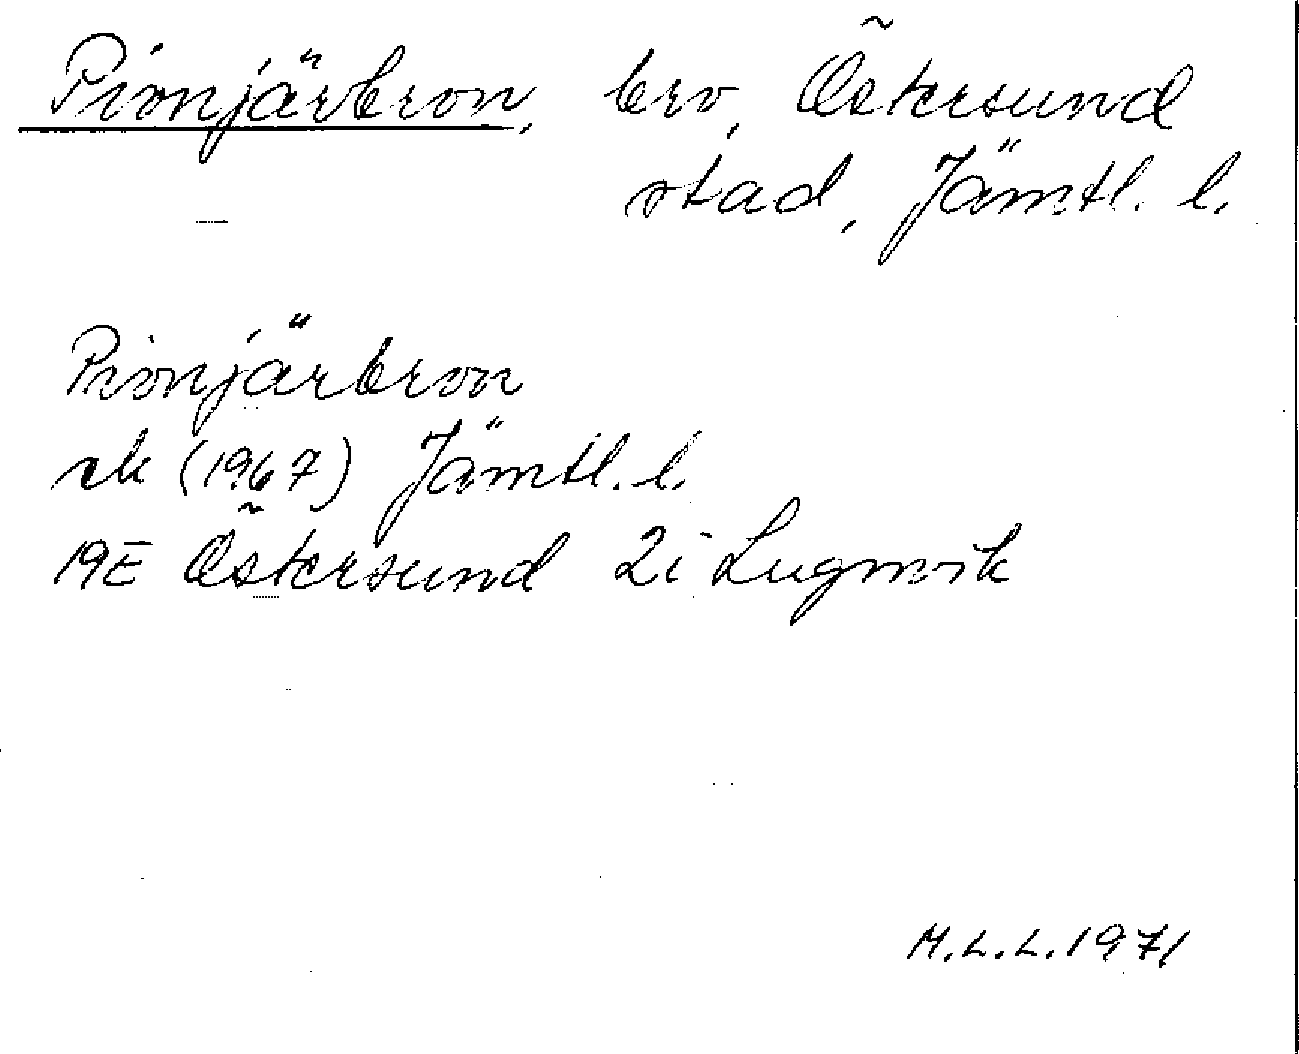 Pionjärbron, bro, Östersund
stad, Jämtl. l.
Pionjärbron
ek (1967) Jämtl. l.
19E Östersund 2i Lugnvik
M.L.L. 1971